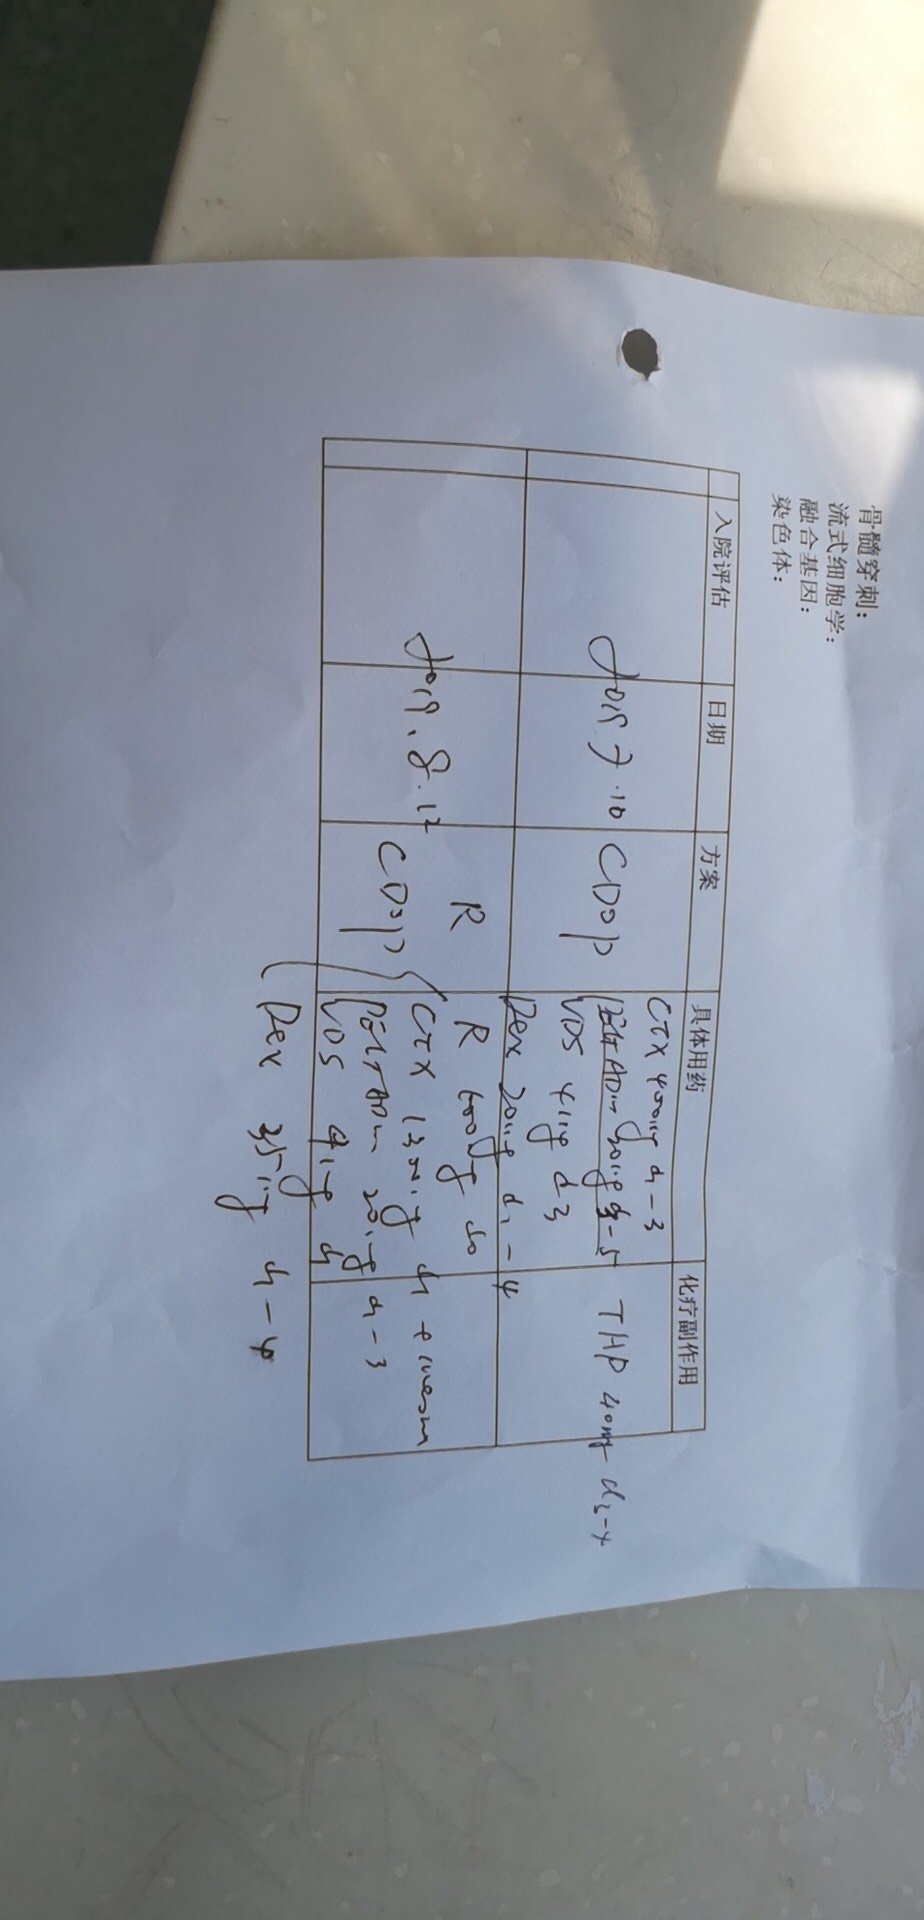 骨髓穿刺：
流式细胞学：
融合基因：
染色体：
入院评估 日期 方案 具体用药 化疗副作用
2019 7.10 CDOP CTX 400mg d1-3
30mg THP 40mg d3-4
VDS 4mg d3
Dex 20mg d1-4
2019.8.12 R R 600mg d0
CDOP CTX 1.3 d1 + mesna
20mg d1-3
VDS 4mg d1
Dex 35mg d1-4